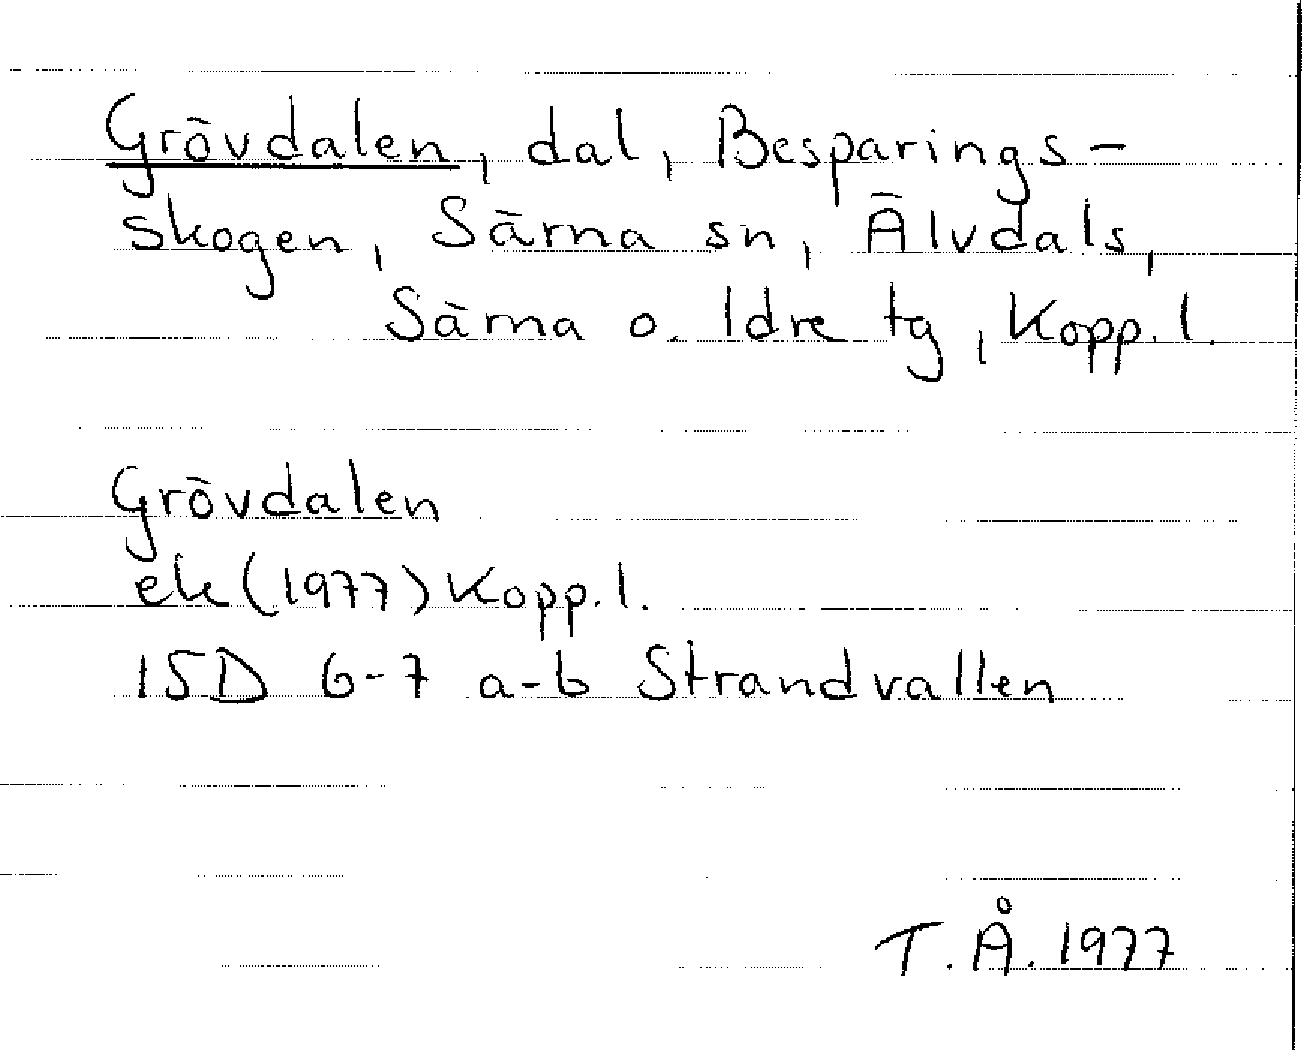 Grövdalen, dal, Besparings-
skogen, Särna sn, Älvdals,
Särna o. Idre tg, Kopp. l.
Grövdalen
ek (1977) Kopp. l.
15D 6-7 a-b Strandvallen
T. Å. 1977